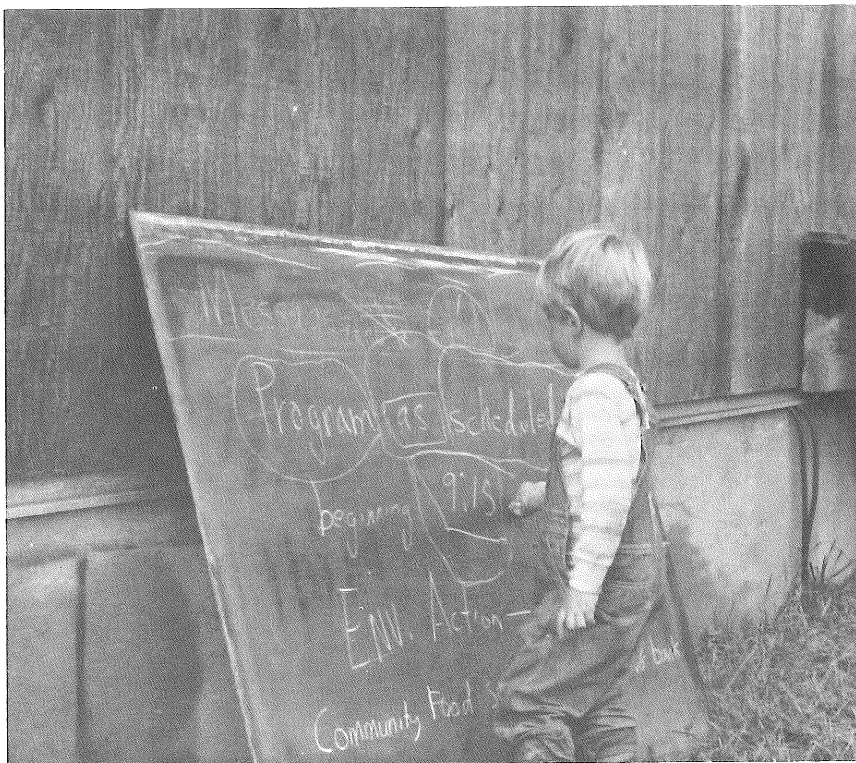 Program as scheduled
beginning 9:15
Env. Action —
Community Food